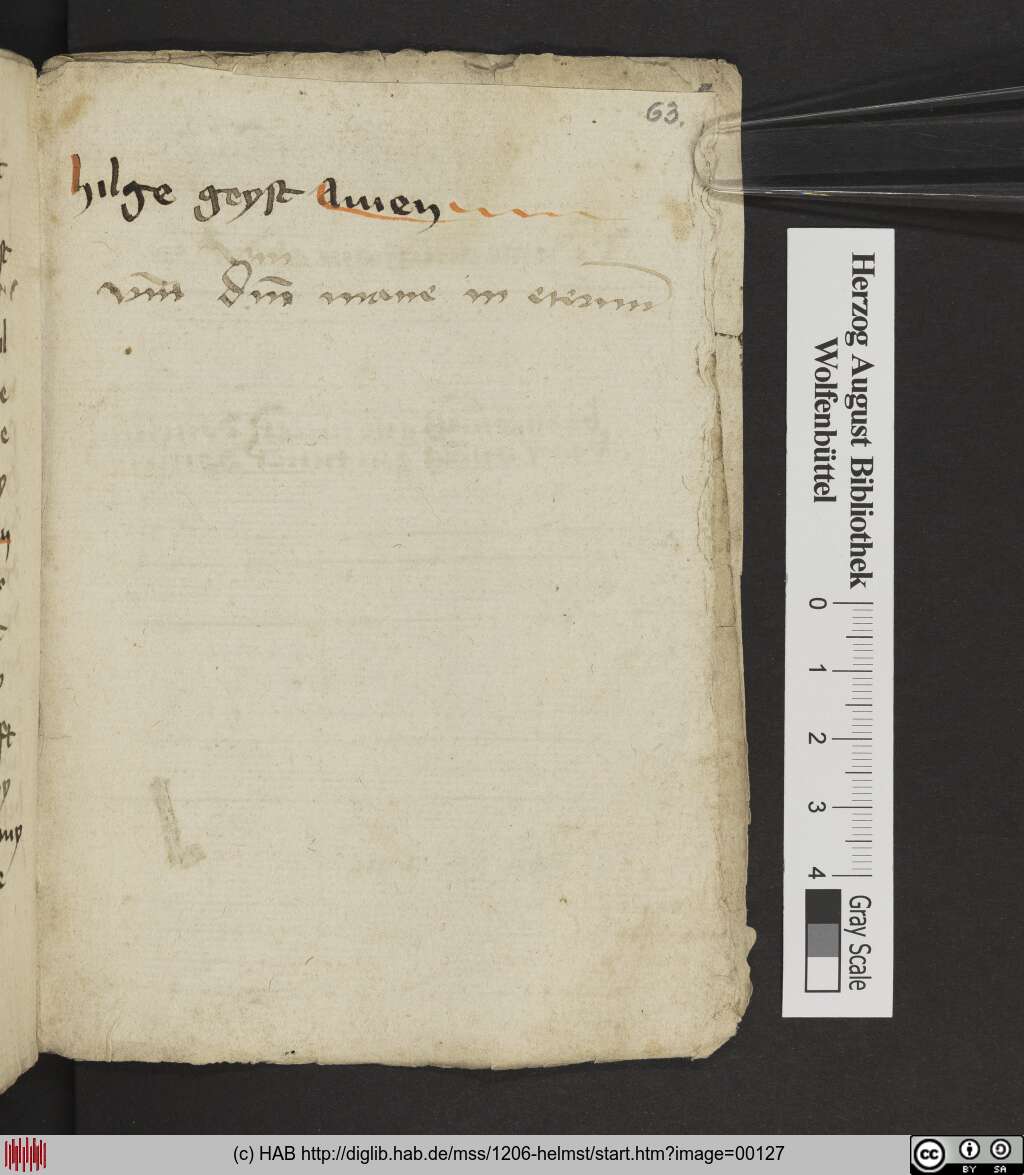 63.
hilge geyst Amen
dm̄ mane in eternum
Herzog August Bibliothek
Wolfenbüttel
0 1 2 3 4
Gray Scale
(c) HAB http://diglib.hab.de/mss/1206-helmst/start.htm?image=00127
cc BY SA